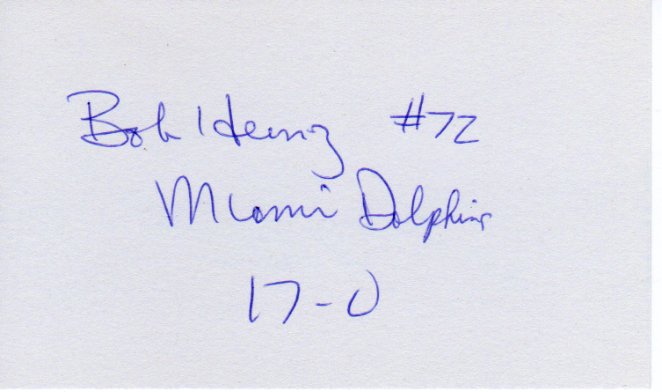 Bob Heinz #72
Miami Dolphins
17-0